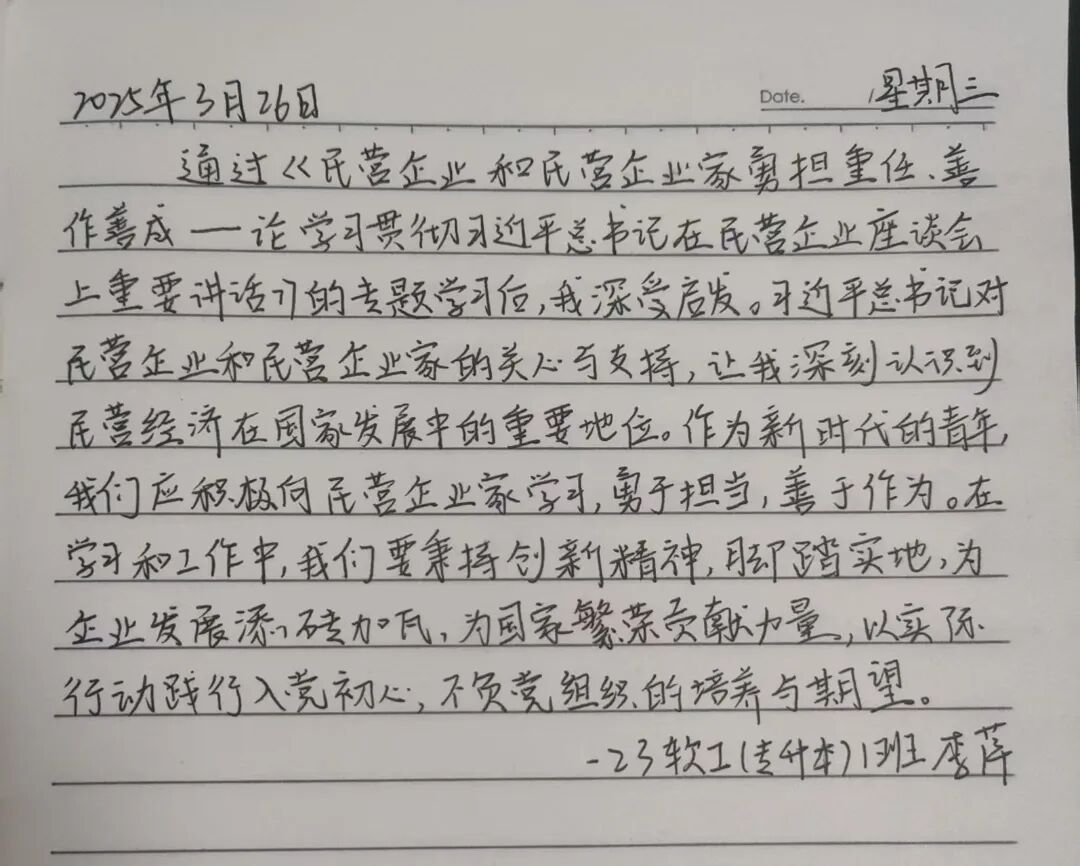 2025年3月26日 Date. / 星期三
通过《民营企业和民营企业家勇担重任、善
作善成——论学习贯彻习近平总书记在民营企业座谈会
上重要讲话》的专题学习后,我深受启发。习近平总书记对
民营企业和民营企业家的关心与支持,让我深刻认识到
民营经济在国家发展中的重要地位。作为新时代的青年,
我们应积极向民营企业家学习,勇于担当,善于作为。在
学习和工作中,我们要秉持创新精神,脚踏实地,为
企业发展添砖加瓦,为国家繁荣贡献力量,以实际
行动践行入党初心,不负党组织的培养与期望。
-23软工(专升本)1班 李萍